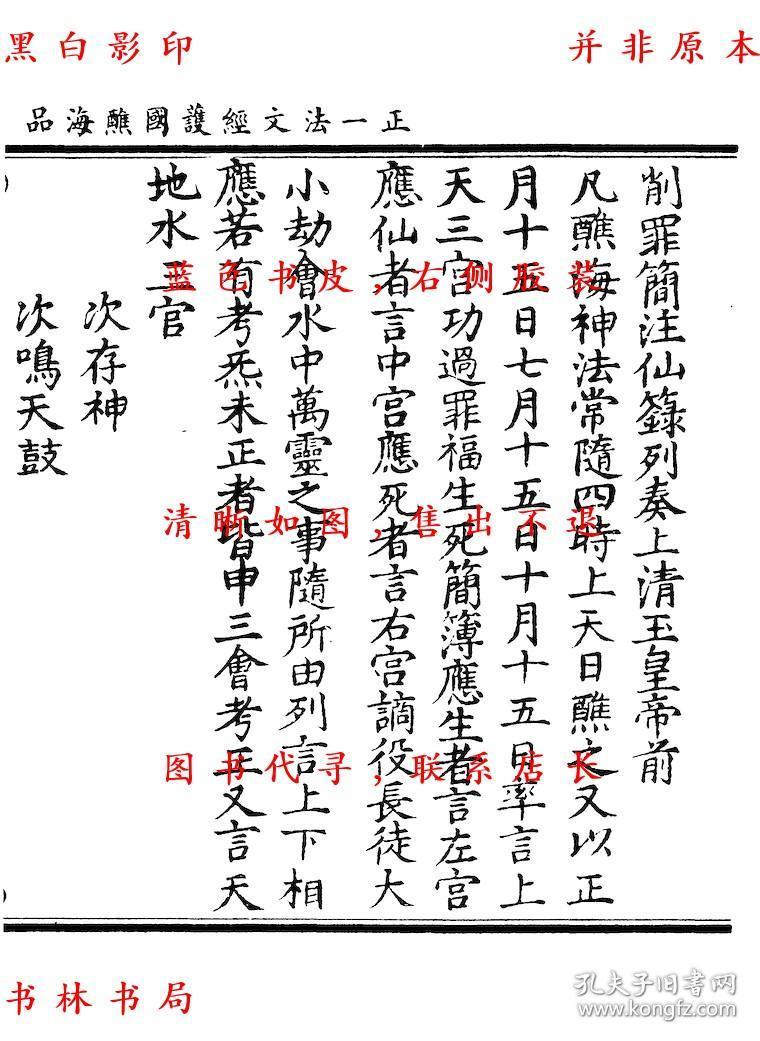 黑白影印
并非原本
正一法文經護國醮海品
削罪簡注仙籙列奏上清玉皇帝前
凡醮海神法常隨四時上天日醮之又以正
月十五日七月十五日十月十五日率言上
天三官功過罪福生死簡簿應生者言左宮
應仙者言中宮應死者言右宮謫役長徒大
小劫會水中萬靈之事隨所由列言上下相
應若有考炁未正者皆申三會考王又言天
地水三官
次存神
次鳴天鼓
蓝色书皮，右侧胶装
清晰如图，售出不退
图书代寻，联系店长
书林书局
孔夫子旧书网
www.kongfz.com